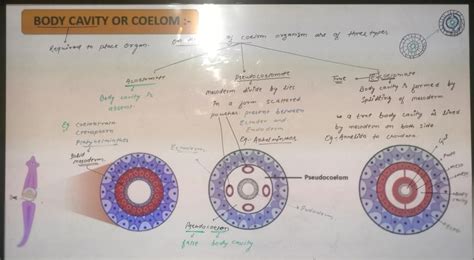 BODY CAVITY OR COELOM :-
Required to place organ.
of coelom organism are of three types
Acoelomate
Body cavity is
absent
Eg
Ctenophora
Platyhelminthes
Solid
mesoderm
Pseudocoelomate
mesoderm divide by lies
in a form scattered
present between
Ectoderm and
Endoderm
Eg:- Aschelminthes
True
Coelomate
Body cavity is formed by
splitting of mesoderm
a true body cavity is lined
by mesoderm on both side
Eg:- Annelida to chordata
Ectoderm
Pseudocoelom
Pseudocoelom
false body cavity
Gut